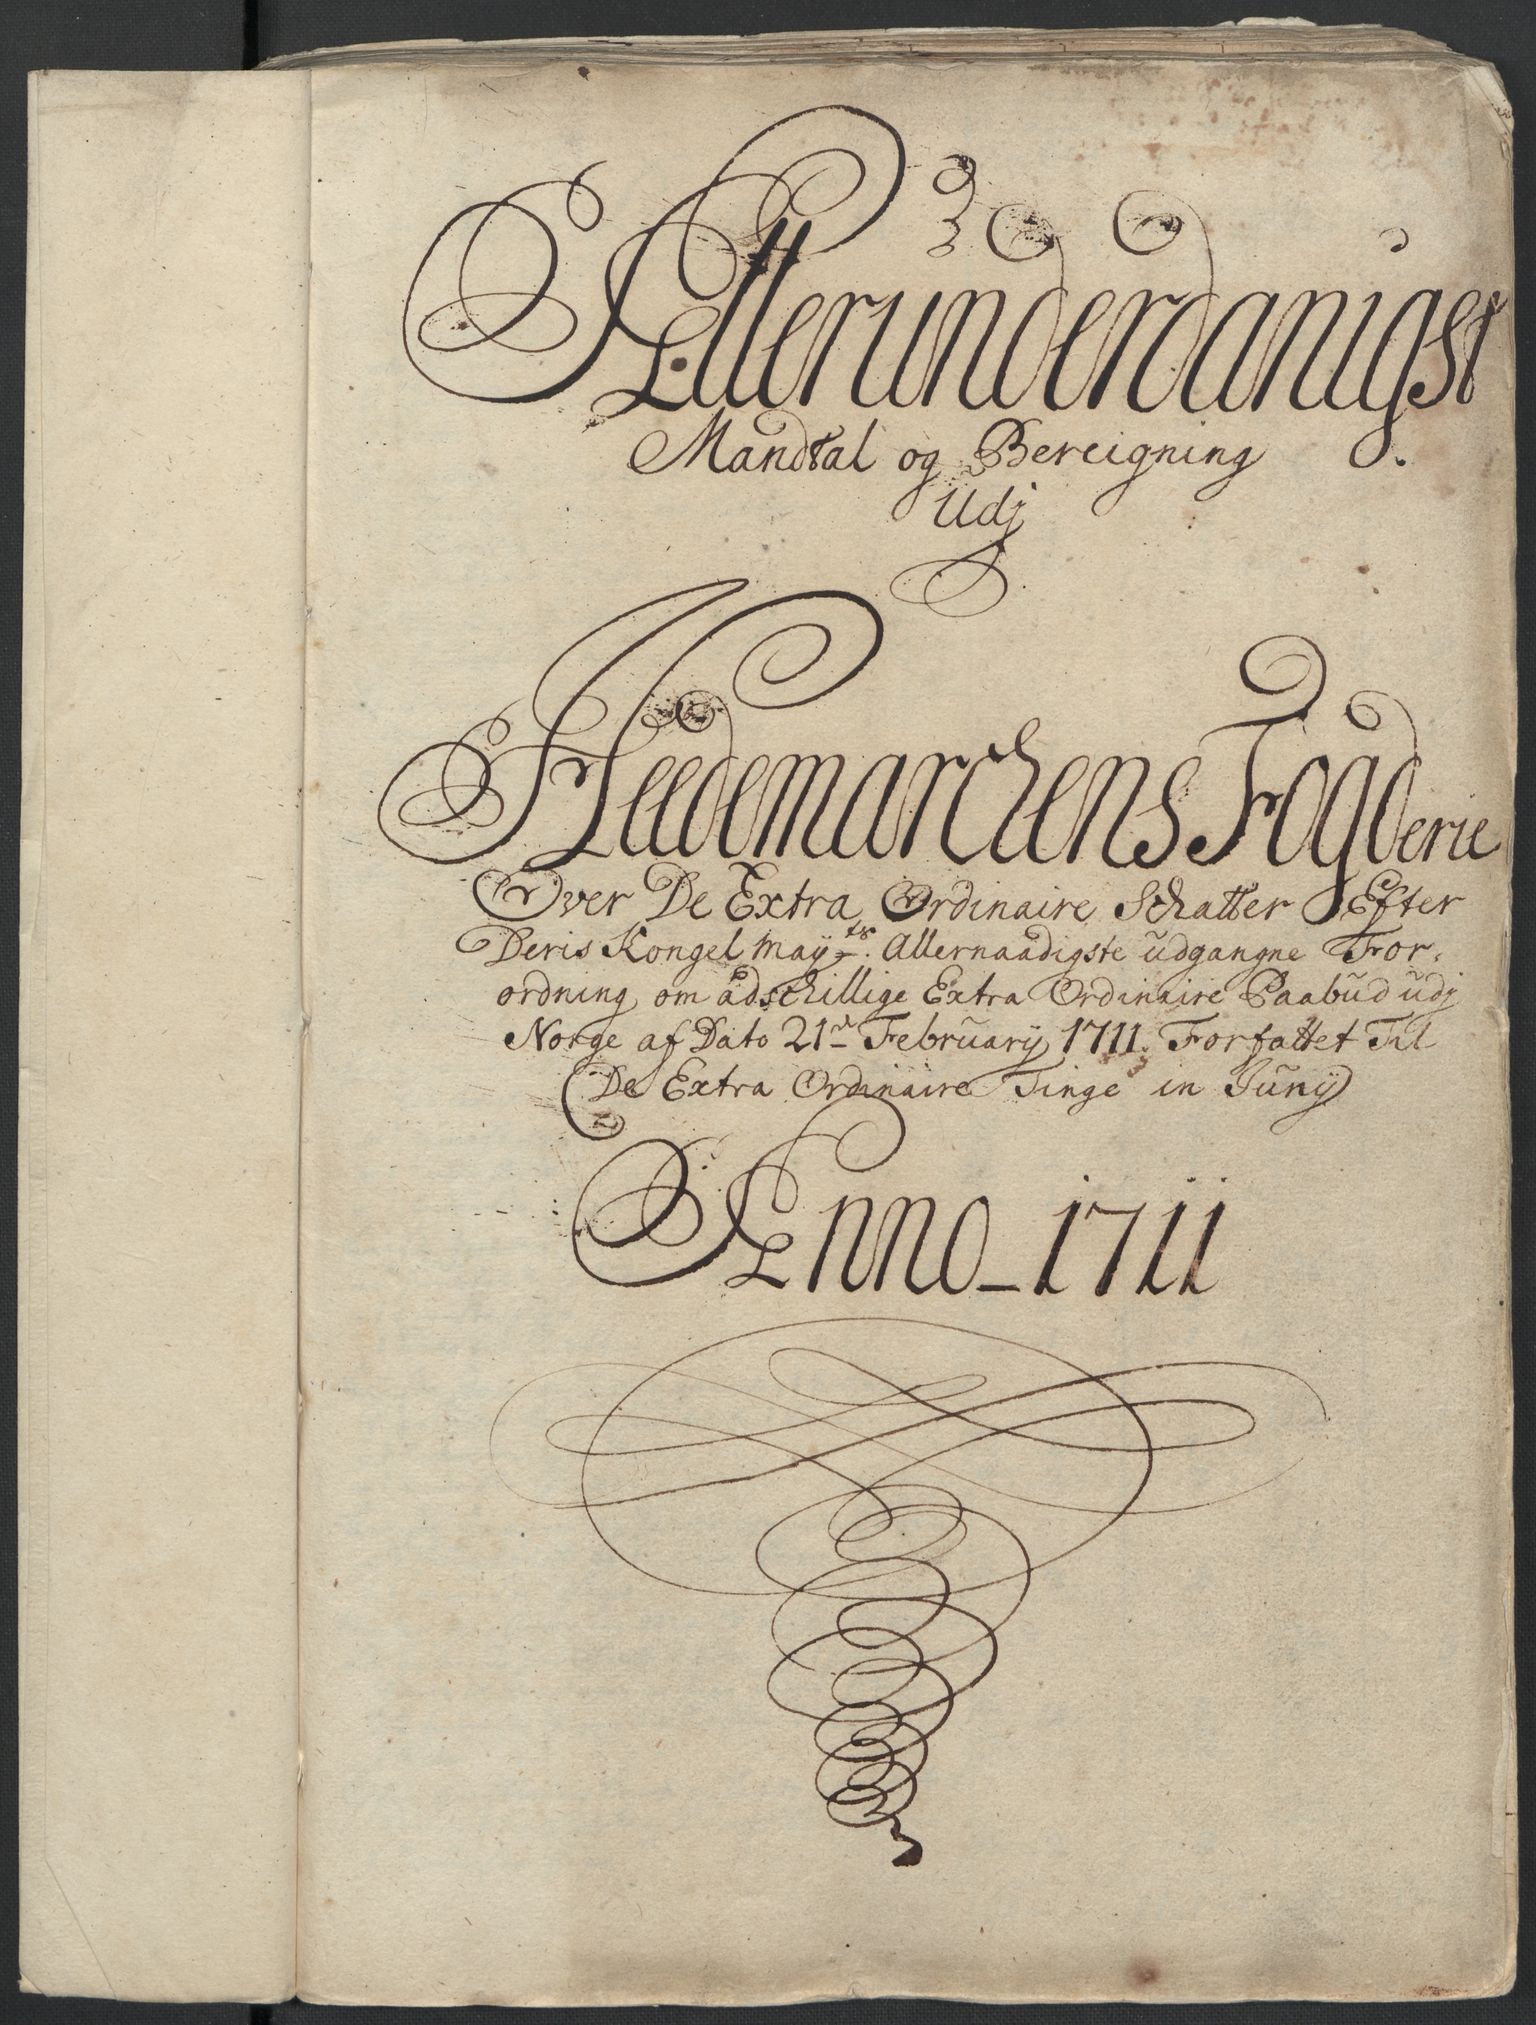 Allerunderdanigst
Mandtal og Bereigning
Udj
Heedemarchens Fogderie
Over De Extra Ordinaire Schatter Efter
Deris Kongel May:ts Allernaadigste udgangne For-
ordning om adschillige Extra Ordinaire Paabud udj
Norge af Dato 21d February 1711. Forfattet Til
De Extra Ordinaire Tinge in Juny
Anno 1711